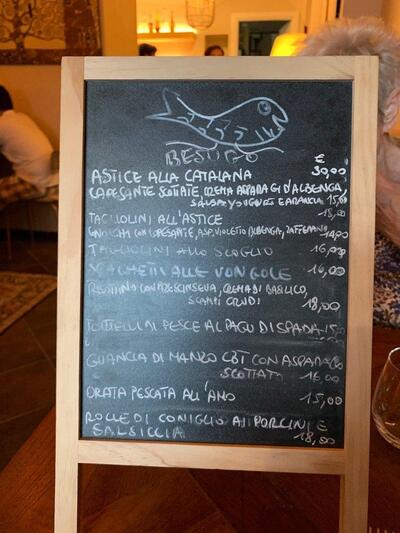 BESUGO
€
ASTICE ALLA CATALANA 30,00
CAPESANTE SCOTTATE, CREMA ASPARAGI D'ALBENGA,
SALSA YOGURT E ARANCIA 15,00
TAGLIOLINI ALL'ASTICE 18,00
GNOCCHI CON CAPESANTE, ASP. VIOLETTO ALBENGA, ZAFFERANO 14,00
TAGLIOLINI ALLO SCOGLIO 16,00
SPAGHETTI ALLE VONGOLE 14,00
RISOTTINO CON PRESCINSEUA, CREMA DI BASILICO,
SCAMPI CRUDI 18,00
TORTELLI DI PESCE AL RAGU DI SPADA 15,00
GUANCIA DI MANZO CBT CON ASPARAGO
SCOTTATO 16,00
ORATA PESCATA ALL'AMO 15,00
ROLLE DI CONIGLIO AI PORCINI E
SALSICCIA 18,00